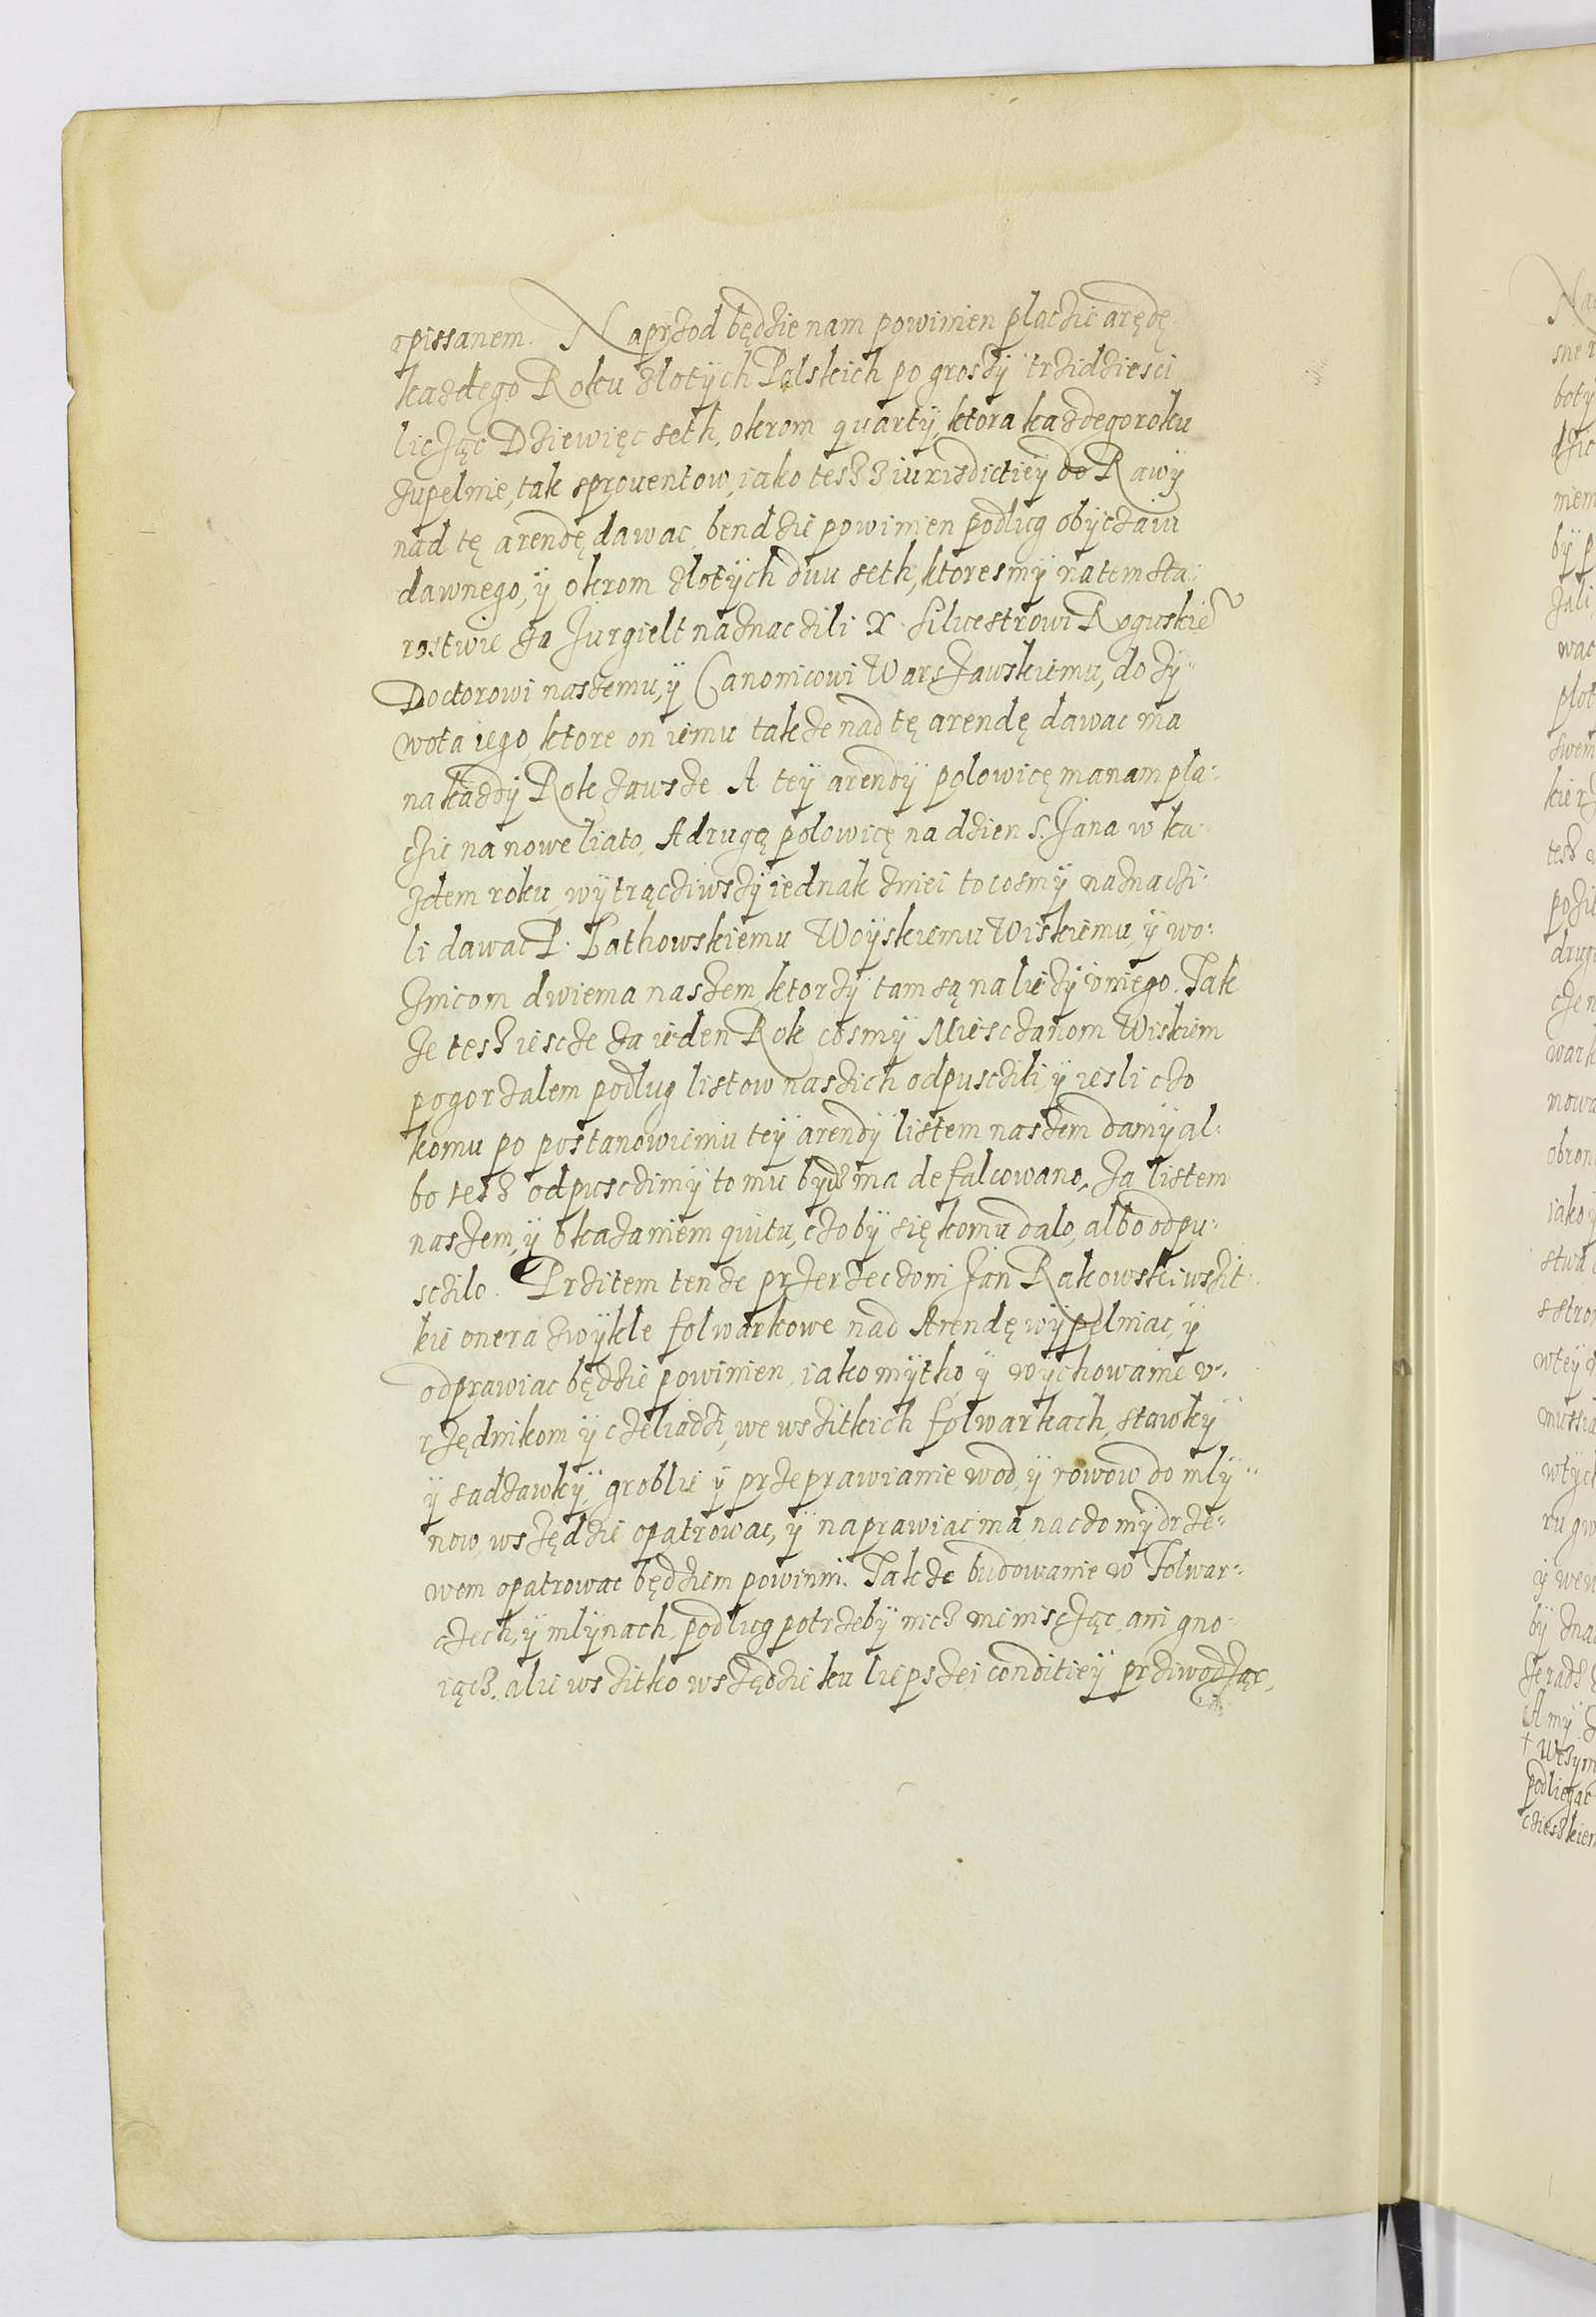 opissanem. Naprzod będzie nam powinien płaczic arędę
kazdego Roku złotÿch Polskich po groszÿ trzidziesci
licząc Dziewięc seth, okrom quartÿ, ktora kazdego roku
zupełnie, tak sprouentow, iako tesz z iurisdictieÿ do Rawÿ
nad tę arendę dawac bendzie powinien podług obÿczaiu
dawnego, ÿ okrom złotÿch dwu seth, ktoresmÿ na tem sta:
rostwie za Jurgielt naznaczili X. Siluestrowi Roguskie͠
Doctorowi naszemu, ÿ Canonicowi Warszawskiemu, do zÿ:
wota iego, ktore on iemu takze nad tę arendę dawac ma
na kazdÿ Rok zawsze. A teÿ arendÿ połowicę ma nam pła:
czic na nowe liato, A drugą połowicę na dzien S. Jana w ka:
zdem roku, wÿtrącziwszÿ iednak zniei to cosmÿ naznaczi:
li dawac P. Bathowskiemu Woÿskiemu Wiskiemu, ÿ wo:
znicom dwiema naszem, ktorzÿ tam są na liezÿ v niego. Tak
ze tesz iescze za ieden Rok cosmÿ Miesczanom Wiskiem
pogorzałem podług listow naszich odpusczili, ÿ iesli czo
komu po postanowieniu teÿ arendÿ listem naszem damÿ al:
bo tesz odpusczimÿ to mu bÿdz ma defalcowano, za listem
naszem, ÿ okazaniem quitu, czo bÿ się komu dało, albo odpu:
scziło. Przitem tenze przerzeczoni Jan Rakowski wszit:
kie onera zwÿkłe folwarkowe nad Arendę wÿpełniac, ÿ
odprawiac będzie powinien, iako mÿtho, ÿ wÿchowanie v:
rzędnikom ÿ czeliadzi, we wszitkich folwarkach, stawkÿ
ÿ sadzawkÿ, groblie ÿ przeprawianie wod, ÿ rowow do młÿ:
now wszędzie opatrowac, ÿ naprawiac ma, na czo mÿ drze:
wem opatrowac będziem powinni. Takze budowanie w Folwar:
czech, ÿ młÿnach, podług potrzebÿ nicz nie niscząc, ani gno:
iącz, alie wszitko wszędzie ku liepszei conditieÿ prziwodząc,